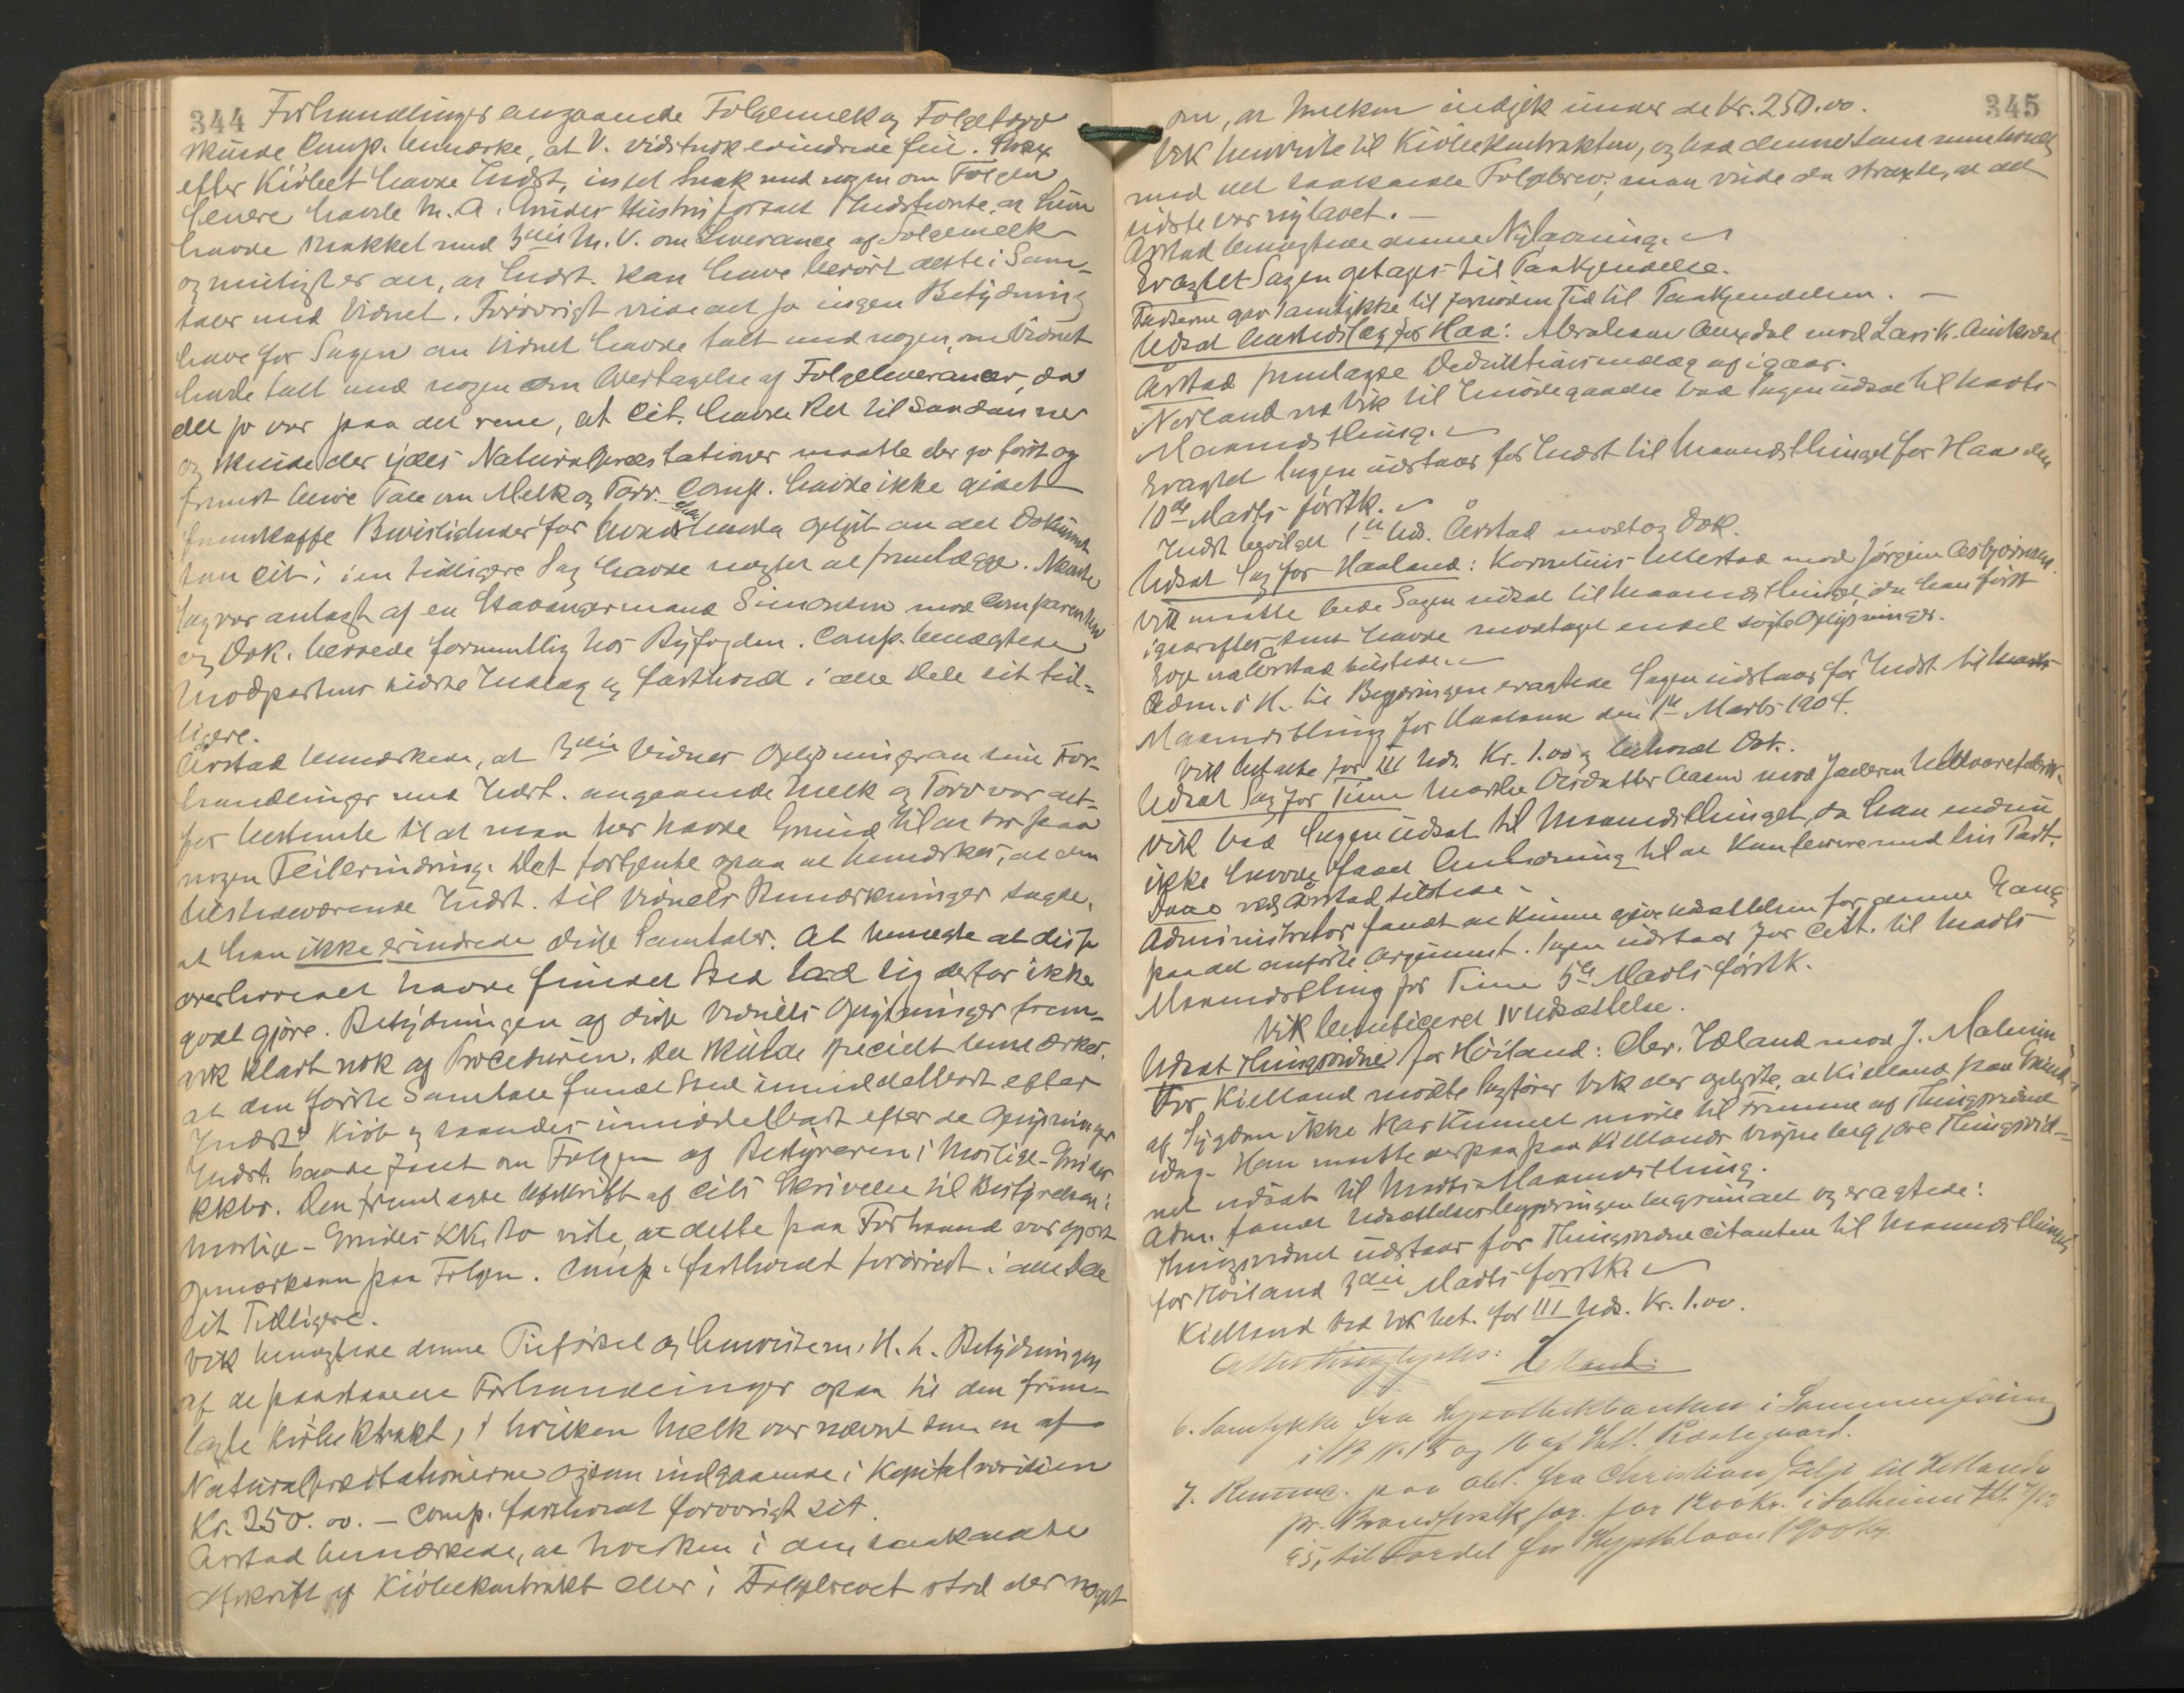 344 Forhandlinger angaaende Folgemelk og Folgetorv
skulde Comp. bemærke, at V. vidstnok erindrede feil. Strax
efter Kiöbet havde Indst. intet Snak med nogen om Folgen
senere havde M. A. Grudes Hustru fortalt Indstevnte, at hun
havde snakket med 3die M. V. om Leverance af Folgemelk
og muligt er det, at Indst. kan have berört dette i Sam-
taler med Vidnet. Forövrigt vilde det jo ingen Betydning
have for Sagen om Vidnet havde talt med nogen, om Vidnet
havde talt med nogen om Overtagelse af Folgeleverancer, da
det jo var paa det rene, at Cit. havde Ret til saadanne
og skulde der ydes Naturalpræstationer maatte der jo först og
fremst blive Tale om Melk og Torv. Comp. havde ikke gidet
fremskaffe Bevisligheder for hvad han havde oplyst om det Dokument
som Cit. i en tidligere Sag havde negtet at fremlægge. Nævnte
Sag var anlagt af en Stavangermand Simonsen mod Comparenten
og Dok. beroede formentlig hos Byfogden. Comp. benægtede
Modpartens sidste Indlæg og fastholdt i alle Dele sit tid-
ligere.
Årstad bemærkede, at 3die Vidnes Oplysninger om sine For-
handlinger med Indst. angaaende Melk og Torv var alt-
for bestemte til at man her havde Grund til at tro paa
nogen Feilerindring. Det fortjente ogsaa at bemærkes, at den
tilstedeværende Indst. til Vidnets Bemærkninger sagde,
at han ikke erindrede disse Samtaler. At benegte at disse
overhovedet havde fundet Sted lod sig derfor ikke
godt gjöre. Betydningen af disse Vidnets Oplysninger frem-
gik klart nok af Proceduren. Det skulde specielt bemærkes,
at den förste Samtale fandt Sted umiddelbart efter
Indsts Kiöb og saaledes umiddelbart efter de Oplysninger
Indst. havde faaet om Folgen af Bestyreren i Moslige-Grudes
KKbo. Den fremlagte Afskrift af Cits Skrivelse til Bestyrelsen i
Moslige-Grudes KK. Bo viste, at dette paa Forhaand var gjort
opmærksom paa Folgen. Comp. fastholdt forövrigt i alle Dele
sit Tidligere.
Vik benegtede denne Tilförsel og henviste m. H. t. Betydningen
af de paastaaede Forhandlinger ogsaa til den frem-
lagte Kiöbekontrakt, i hvilken Melk var nævnt som en af
Naturalpræstationerne og som indgaaende i Kapitalværdien
Kr. 250.00. – Comp. fastholdt forövrigt sit.
Årstad bemærkede, at hverken i den saakaldte
Afskrift af Kiöbekontrakt eller i Folgebrevet stod der noget
345
om, at Melken indgik under de Kr. 250.00.
Vik henviste til Kiöbekontrakten, og bad denne sammenholdt
med det saakaldte Folgebrev; man vilde da straxt se, at det
sidste var nylavet. –
Årstad benegtede denne Nylavning.
Eragtet Sagen optages til Paakjendelse.
Parterne gav Samtykke til fornöden Tid til Paakjendelsen. –
Udsat Gjæstretssag for Haa: Abraham Auedal mod Lars K. Auedal
Årstad fremlagde Deduktionsindlæg af igaar.
Norland ved Vik til Imödegaaelse bad Sagen udsat til Marts
Maanedsthing.
Eragtet Sagen udstaar for Indst til Maanedsthinget for Haa den
10de Marts förstk.
Indst bevilget 1ste Uds. Årstad modtog Dok.
Udsat Sag for Haaland: Kornelius Ullestad mod Jörgen Asbjörnsen.
Vik maatte bede Sagen udsat til Maanedsthinget da han först
igaaraftes sent havde modtaget endel sögte Oplysninger.
Eoge ved Årstad tilstede.
Adm. i H. til Begjæringen eragtede Sagen udstaar for Indst til Marts
Maanedsthing for Haaland den 1ste Marts 1904.
Vik betalte for III Uds. Kr. 1.00 og beholdt Dok.
Udsat Sag for Time Marthe Orsdatter Aasen mod Jæderen
Vik bad Sagen udsat til Maanedsthinget, da han endnu
ikke havde faaet Anledning til at konferere med sin Part.
Daae ved Årstad tilstede.
Administrator fandt at kunne give Udsættelsen for denne Gang
paa det anförte Argument. Sagen udstaar for Citt. til Marts
Maanedsthing for Time 5te Marts förstk.
Vik beneficeret IV Udsættelse.
Udsat Thingsvidne for Höiland: Chr. Ueland mod J. Malmin
For Kielland mödte Sagförer Vik der oplyste, at Kielland paa Grund
af Sygdom ikke har kunnet möde til Fremme af Thingsvidnet
idag. Han maatte derpaa paa Kiellands Vegne begjære Thingsvid-
net udsat til Marts Maanedsthing.
Adm. fandt Udsættelsesbegjæringen begrundet og eragtede:
Thingsvidnet udstaar for Thingsvidnecitanten til Maanedsthinget
for Höiland 3die Marts förstk.
Kielland ved Vik bet. for III Uds. Kr. 1.00.
Atter thinglystes:
6. Samtykke fra Hypothekbanken i Sammenföining
i B N. 15 og 16 af
7. paa obl. fra Christian til Hetlands
pr. Brandforsik for 1200 Kr. i Solheim
95, til Fordel for Hypothlaan 1900 Kr.